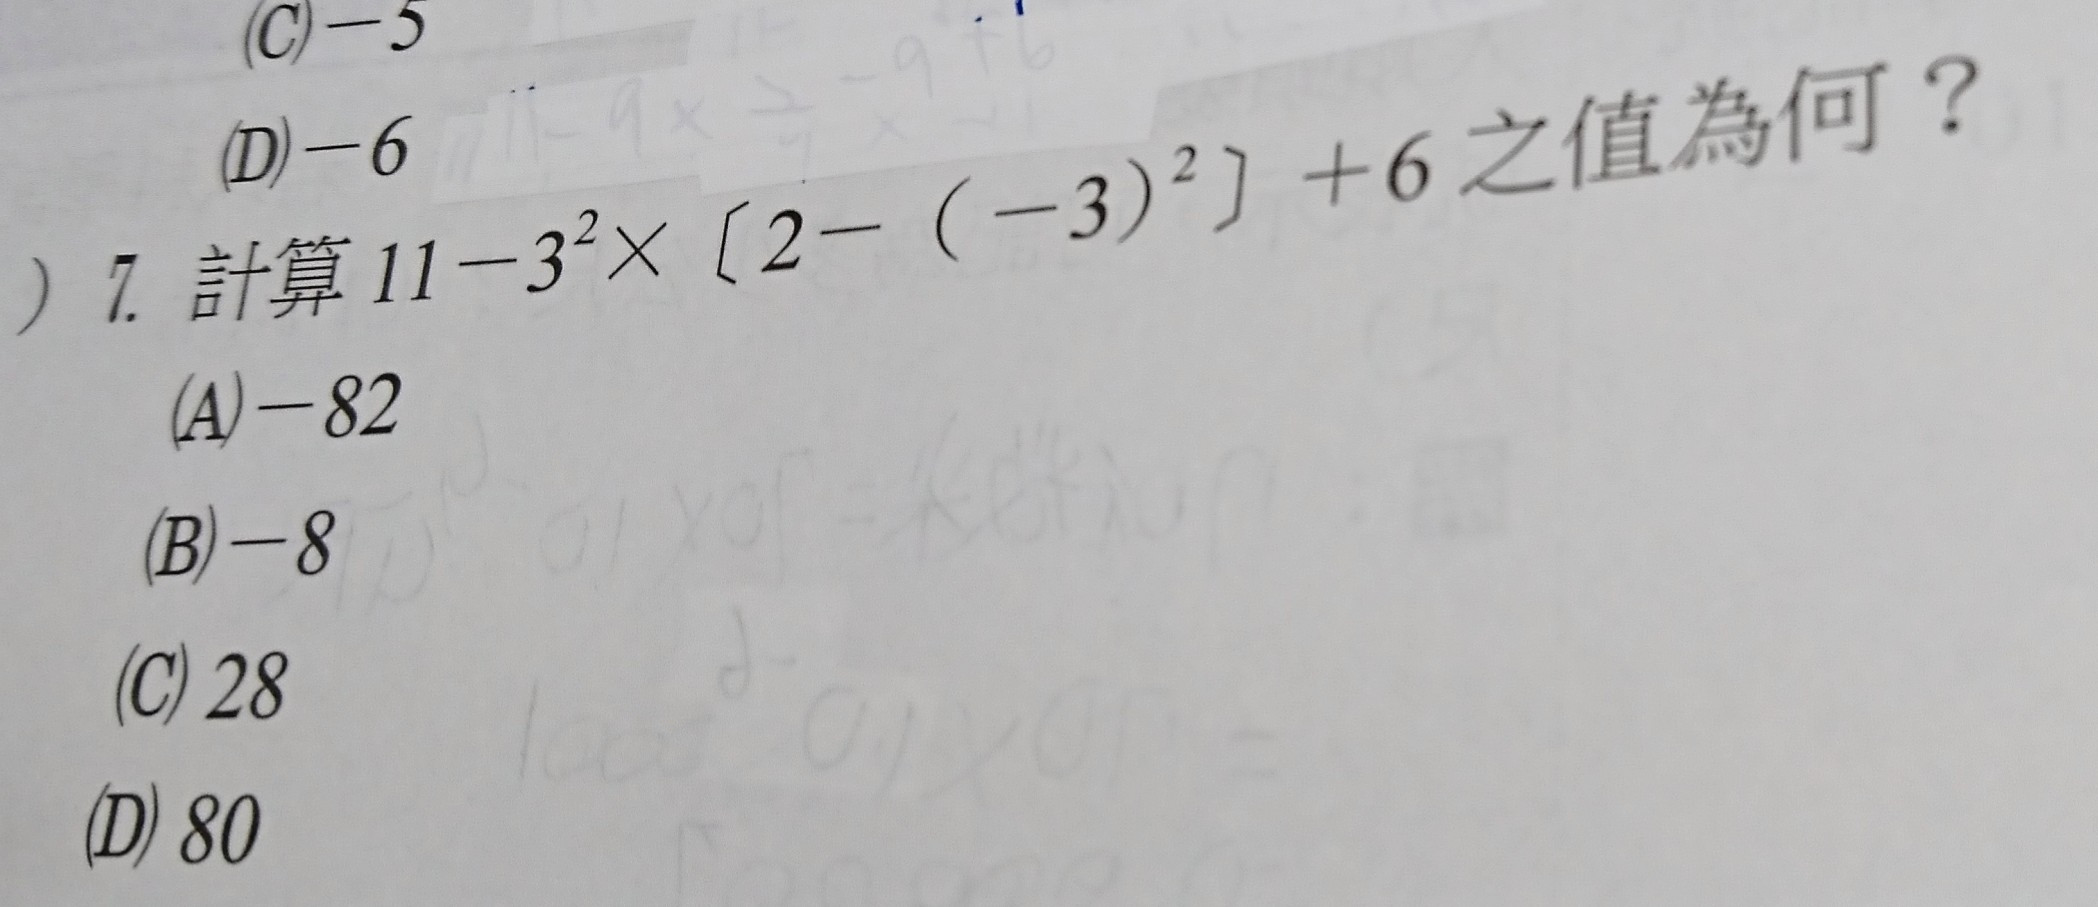 (C)－5
(D)－6
) 7. 計算 11－3²×〔2－(－3)²〕＋6 之值為何？
(A)－82
(B)－8
(C) 28
(D) 80